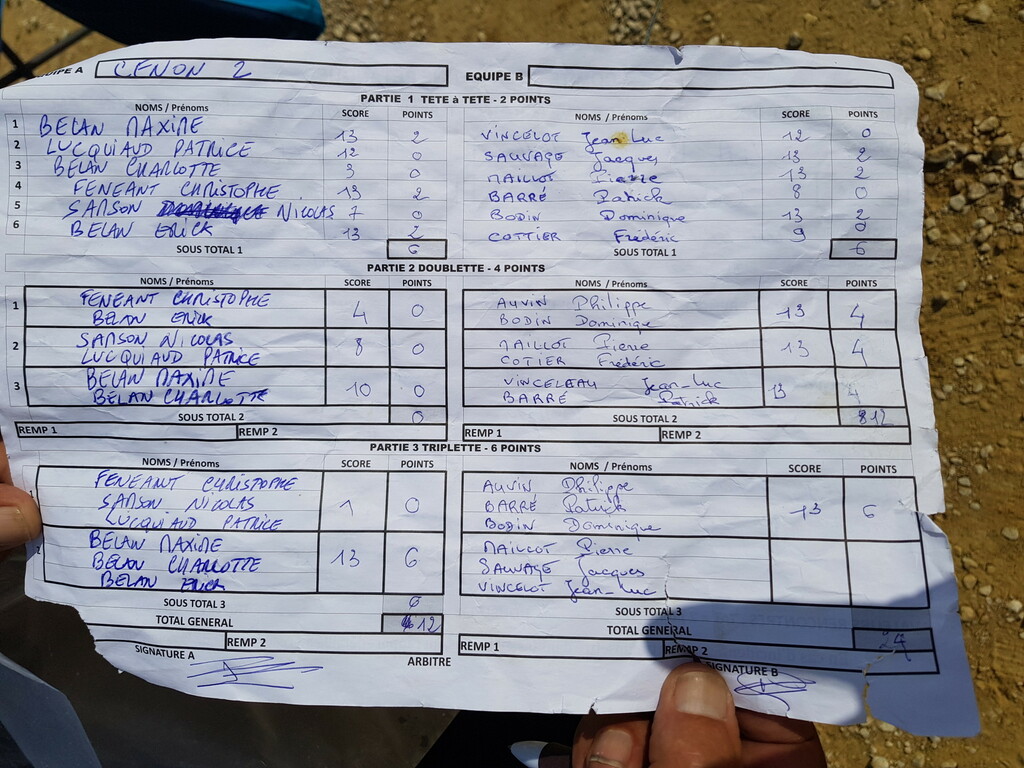 EQUIPE A CENON 2 EQUIPE B
PARTIE 1 TETE à TETE - 2 POINTS
NOMS / Prénoms SCORE POINTS NOMS / Prénoms SCORE POINTS
1 BELAN MAXIME 13 2 VINCELOT Jean-Luc 12 0
2 LUCQUIAUD PATRICE 12 0 SAUVAGE Jacques 13 2
3 BELAN CHARLOTTE 3 0 MAILLOT Pierre 13 2
4 FENEANT CHRISTOPHE 13 2 BARRÉ Patrick 8 0
5 SANSON NICOLAS 7 0 BODIN Dominique 13 2
6 BELAN ERICK 13 2 COTTIER Frédéric 9 0
SOUS TOTAL 1 6 SOUS TOTAL 1 6
PARTIE 2 DOUBLETTE - 4 POINTS
NOMS / Prénoms SCORE POINTS NOMS / Prénoms SCORE POINTS
1 FENEANT CHRISTOPHE 4 0 AUVIN Philippe 13 4
BELAN ERICK BODIN Dominique
2 SANSON NICOLAS 8 0 MAILLOT Pierre 13 4
LUCQUIAUD PATRICE COTIER Frédéric
3 BELAN MAXIME 10 0 VINCELEAU Jean-Luc 13 4
BELAN CHARLOTTE BARRÉ Patrick
SOUS TOTAL 2 0 SOUS TOTAL 2 812
REMP 1 REMP 2 REMP 1 REMP 2
PARTIE 3 TRIPLETTE - 6 POINTS
NOMS / Prénoms SCORE POINTS NOMS / Prénoms SCORE POINTS
FENEANT CHRISTOPHE AUVIN Philippe
SANSON NICOLAS 1 0 BARRÉ Patrick 13 6
LUCQUIAUD PATRICE BODIN Dominique
BELAN MAXIME MAILLOT Pierre
BELAN CHARLOTTE 13 6 SAUVAGE Jacques
BELAN ERICK VINCELOT Jean-Luc
SOUS TOTAL 3 6 SOUS TOTAL 3
TOTAL GENERAL 12 TOTAL GENERAL 24
REMP 2 REMP 1 REMP 2
SIGNATURE A ARBITRE SIGNATURE B